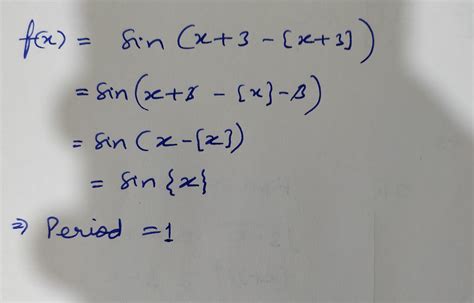 f(x) = Sin (x+3 - [x+3])
= Sin (x+3 - [x] - 3)
= Sin (x - [x])
= Sin {x}
⇒ Period = 1